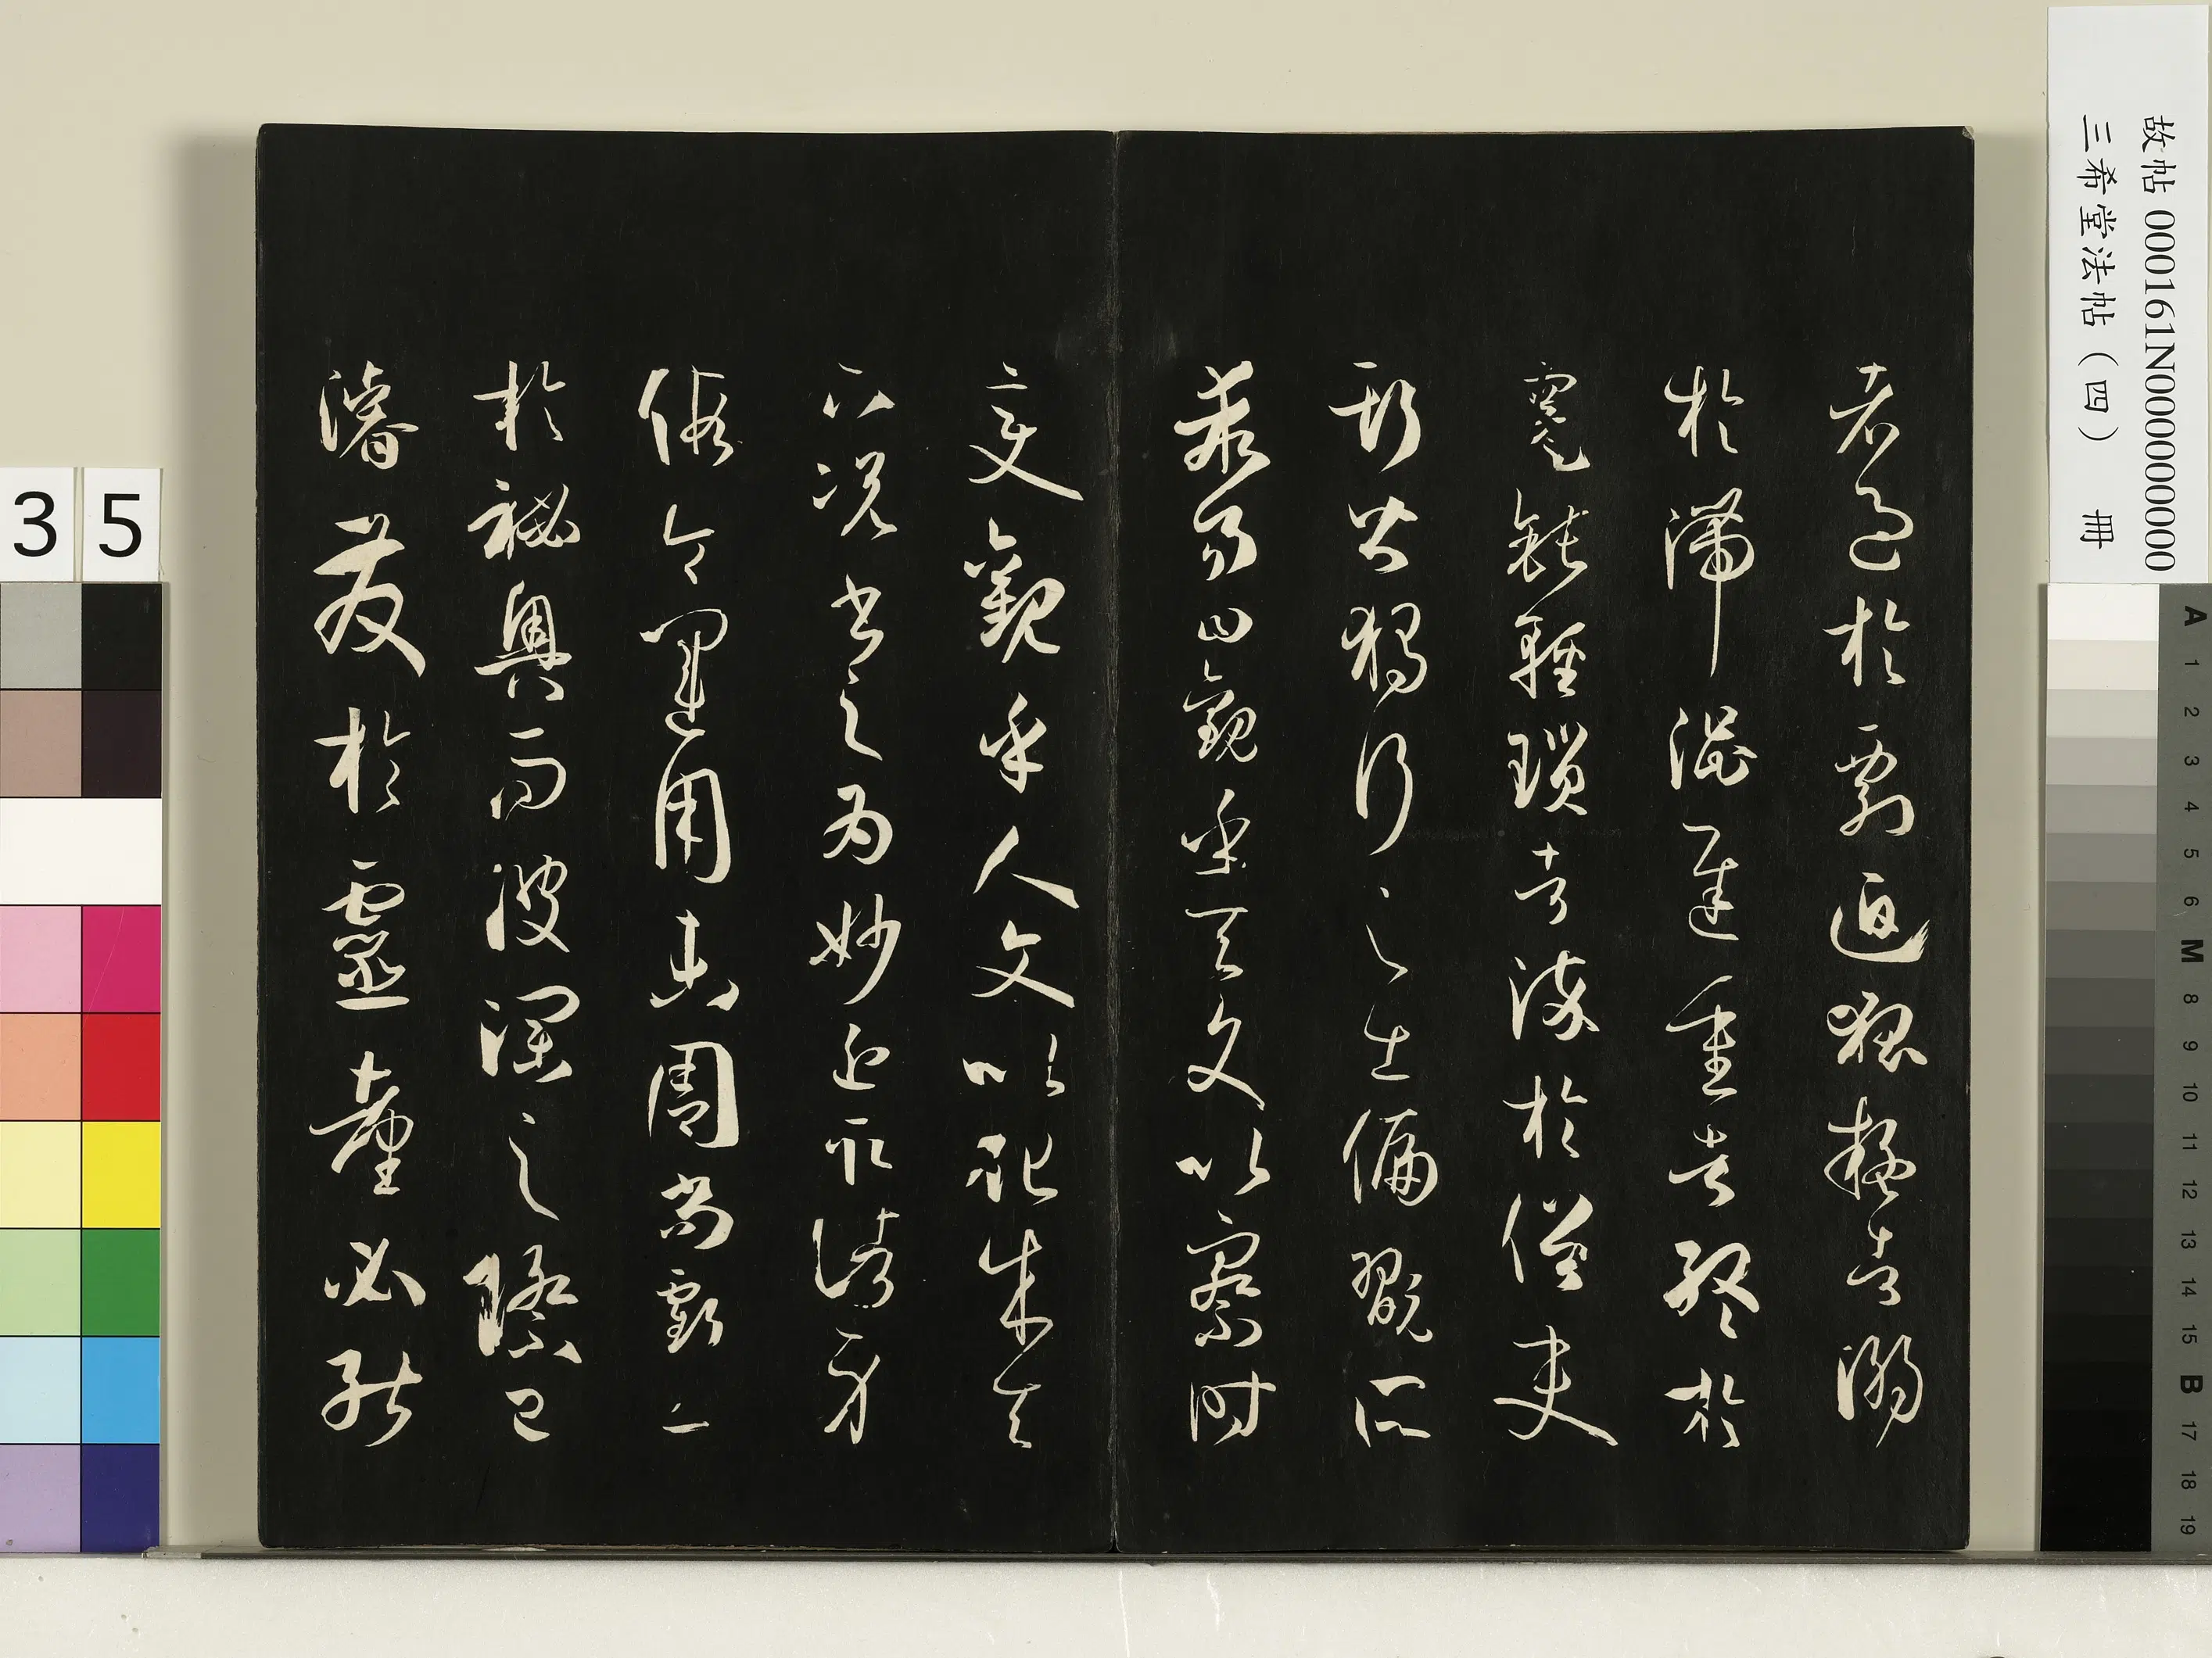 故帖 000161N000000000
三希堂法帖（四） 冊
者過於剽迫狐疑者溺
於滯澀遲重者終於
蹇鈍輕瑣者淬於俗吏
斯皆獨行之士偏翫所
乖易曰觀乎天文以察時
變觀乎人文以化成天
下況書之為妙近取諸身
假令運用未周尚虧工
於祕奧而波瀾之際已
濬發於靈臺必能
35
A 1 2 3 4 5 6 M 8 9 10 11 12 13 14 15 B 17 18 19